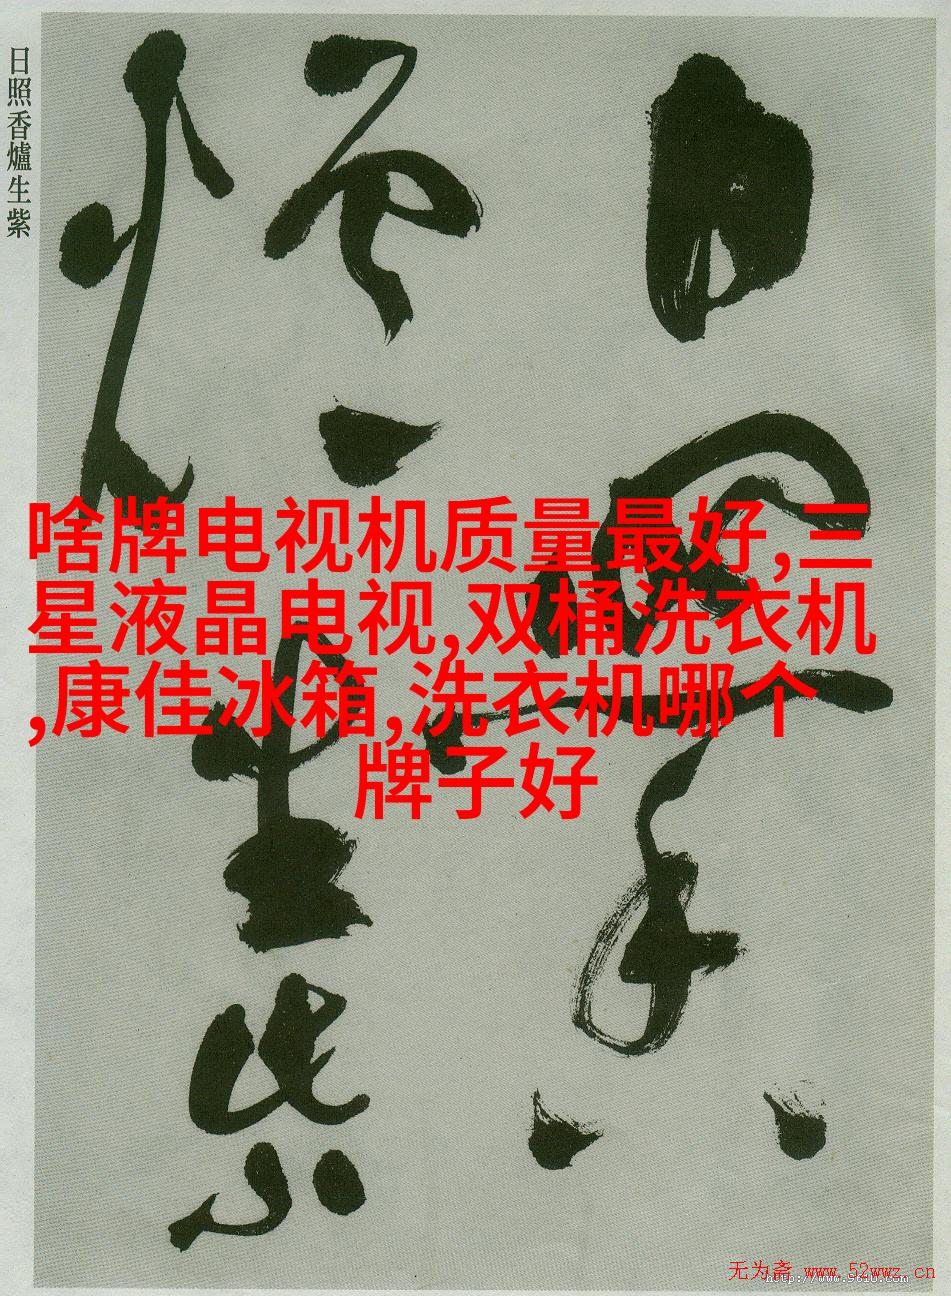 日照香爐生紫
日照
香爐
生紫
啥牌电视机质量最好,三
星液晶电视,双桶洗衣机
,康佳冰箱,洗衣机哪个
牌子好
无为斋 www.52wwz.cn
http://www.9610.com